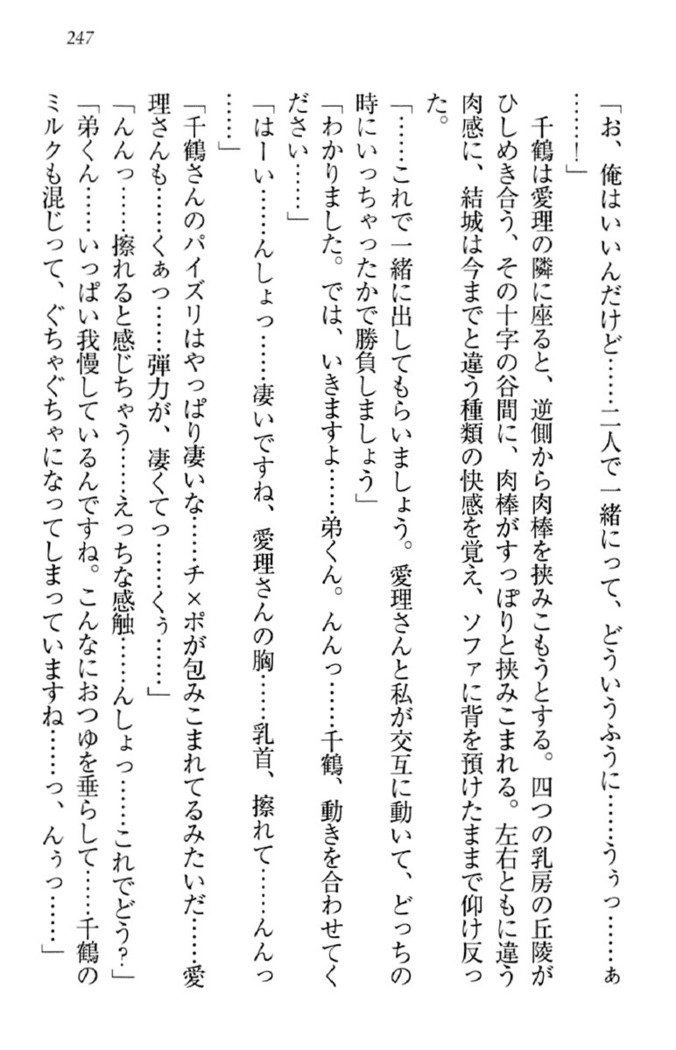 247
「お、俺はいいんだけど……二人で一緒にって、どういうふうに……うぅっ……ぁ
……！」
　千鶴は愛理の隣に座ると、逆側から肉棒を挟みこもうとする。四つの乳房の丘陵が
ひしめき合う、その十字の谷間に、肉棒がすっぽりと挟みこまれる。左右ともに違う
肉感に、結城は今までと違う種類の快感を覚え、ソファに背を預けたままで仰け反っ
た。
「……これで一緒に出してもらいましょう。愛理さんと私が交互に動いて、どっちの
時にいっちゃったかで勝負しましょう」
「わかりました。では、いきますよ……弟くん。んんっ……千鶴、動きを合わせてく
ださい……」
「はーい……んしょっ……凄いですね、愛理さんの胸……乳首、擦れて……んんっ
……」
「千鶴さんのパイズリはやっぱり凄いな……チ×ポが包みこまれてるみたいだ……愛
理さんも……くぁっ……弾力が、凄くてっ……くぅ……」
「んんっ……擦れると感じちゃう……えっちな感触……んしょっ……これでどう？」
「弟くん……いっぱい我慢しているんですね。こんなにおつゆを垂らして……千鶴の
ミルクも混じって、ぐちゃぐちゃになってしまっていますね……っ、んぅっ……」